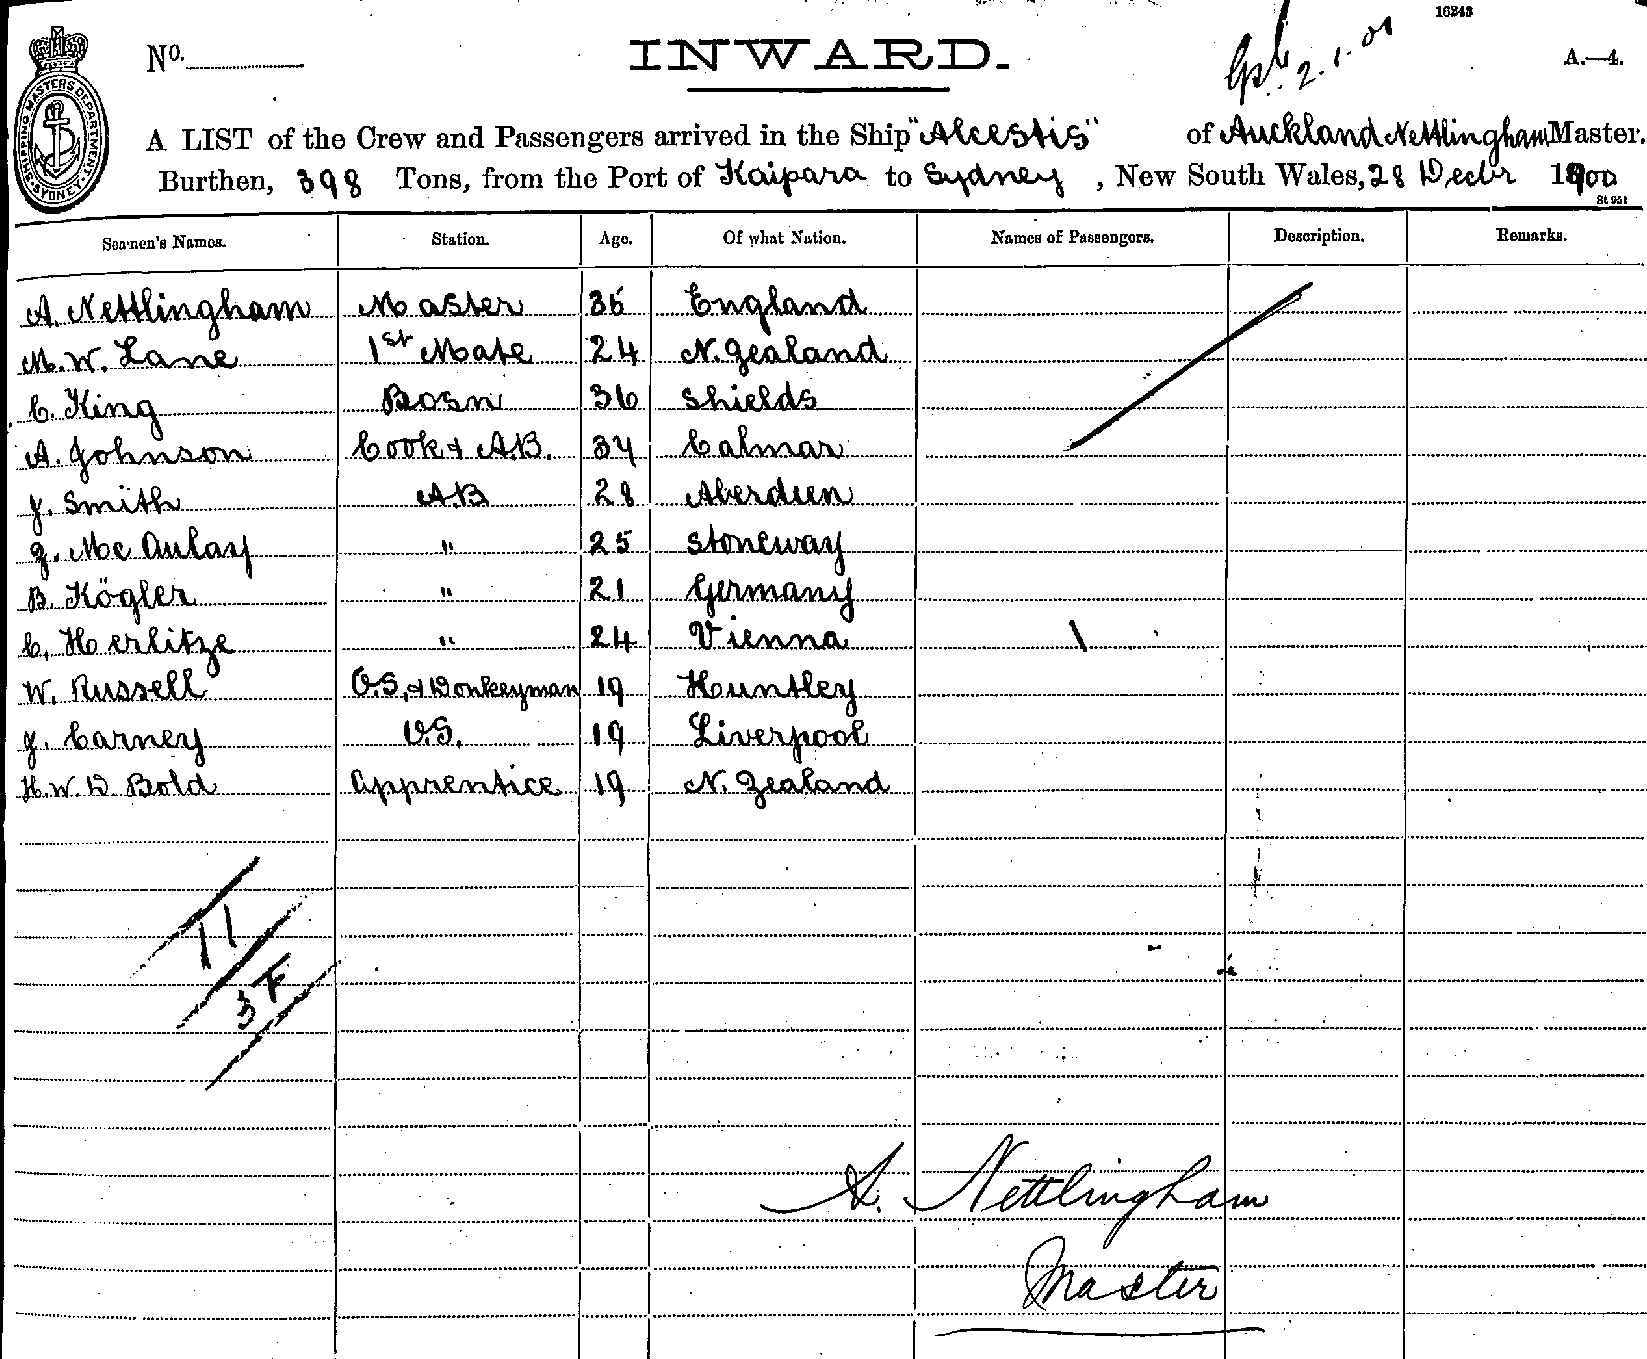 16243
No.
INWARD.
2.1.01
A.—4.
SHIPPING MASTERS DEPARTMENT SYDNEY
A LIST of the Crew and Passengers arrived in the Ship "Alcestis" of Auckland Nettlingham Master.
Burthen, 398 Tons, from the Port of Kaipara to Sydney, New South Wales, 28 Decbr 1900
St 951
Seamen's Names. Station. Age. Of what Nation. Names of Passengers. Description. Remarks.
A. Nettlingham Master 35 England
M. W. Lane 1st Mate 24 N. Zealand
C. King Bosn 36 Shields
A. Johnson Cook & A.B. 34 Calmar
J. Smith A.B 28 Aberdeen
J. Mc Aulay " 25 Stoneway
B. Kögler " 21 Germany
C. Herlitze " 24 Vienna
W. Russell O.S. & Donkeyman 19 Huntley
J. Carney O.S. 19 Liverpool
H. W. D. Bold Apprentice 19 N. Zealand
11
3 F
A. Nettlingham
Master